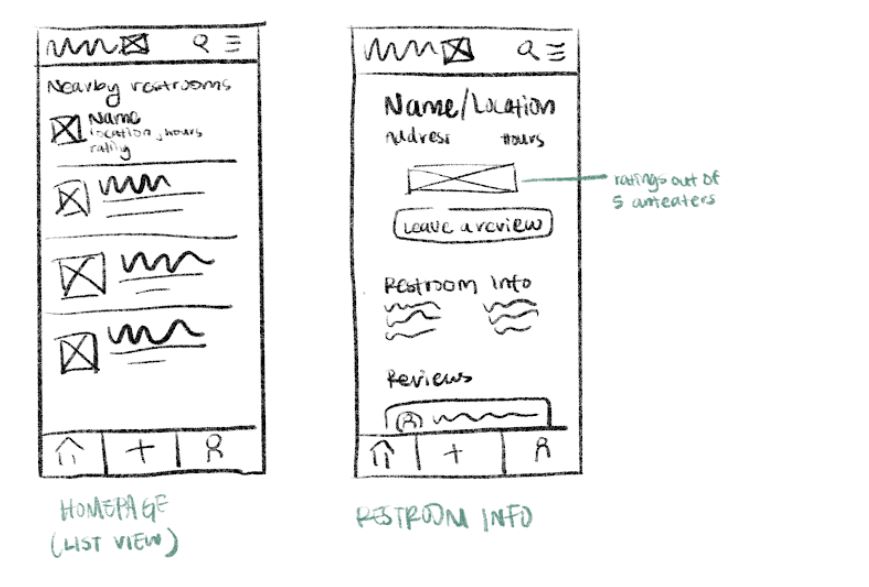 Nearby restrooms
Name
location, hours
rating
HOMEPAGE
(LIST VIEW)
Name/Location
Address Hours
ratings out of
5 anteaters
Leave a review
Restroom Info
Reviews
RESTROOM INFO